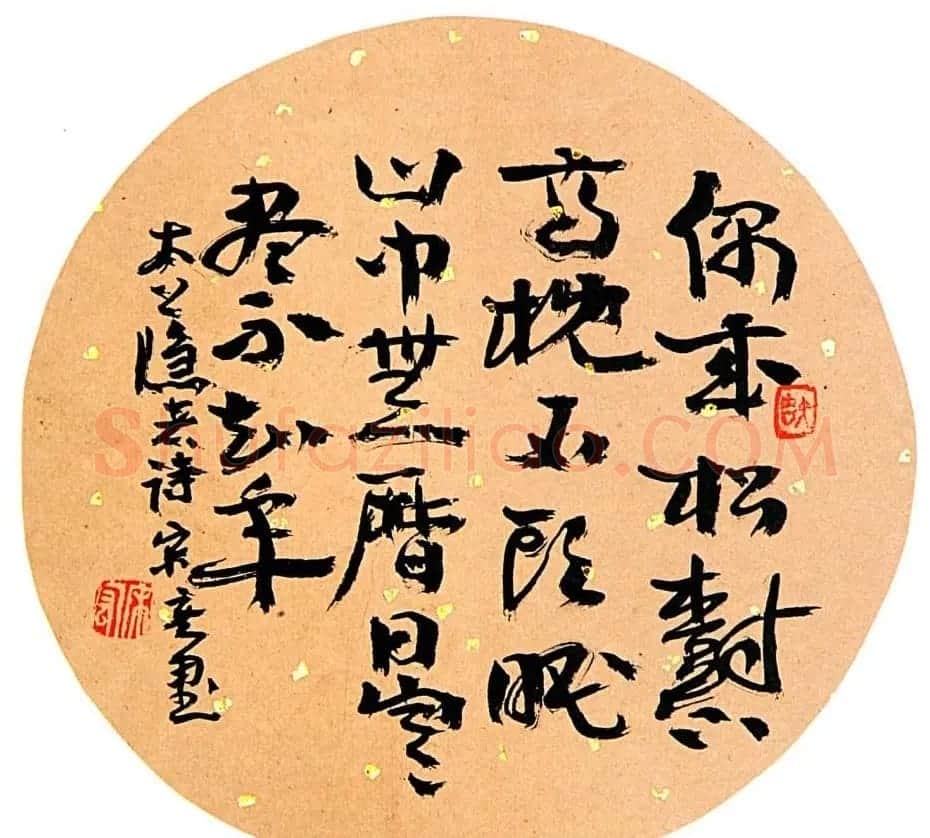 偶来松樹下
高枕石頭眠
山中無曆日寒
尽不知年
太上隱者詩 宗 墨
Shufaziliao.COM